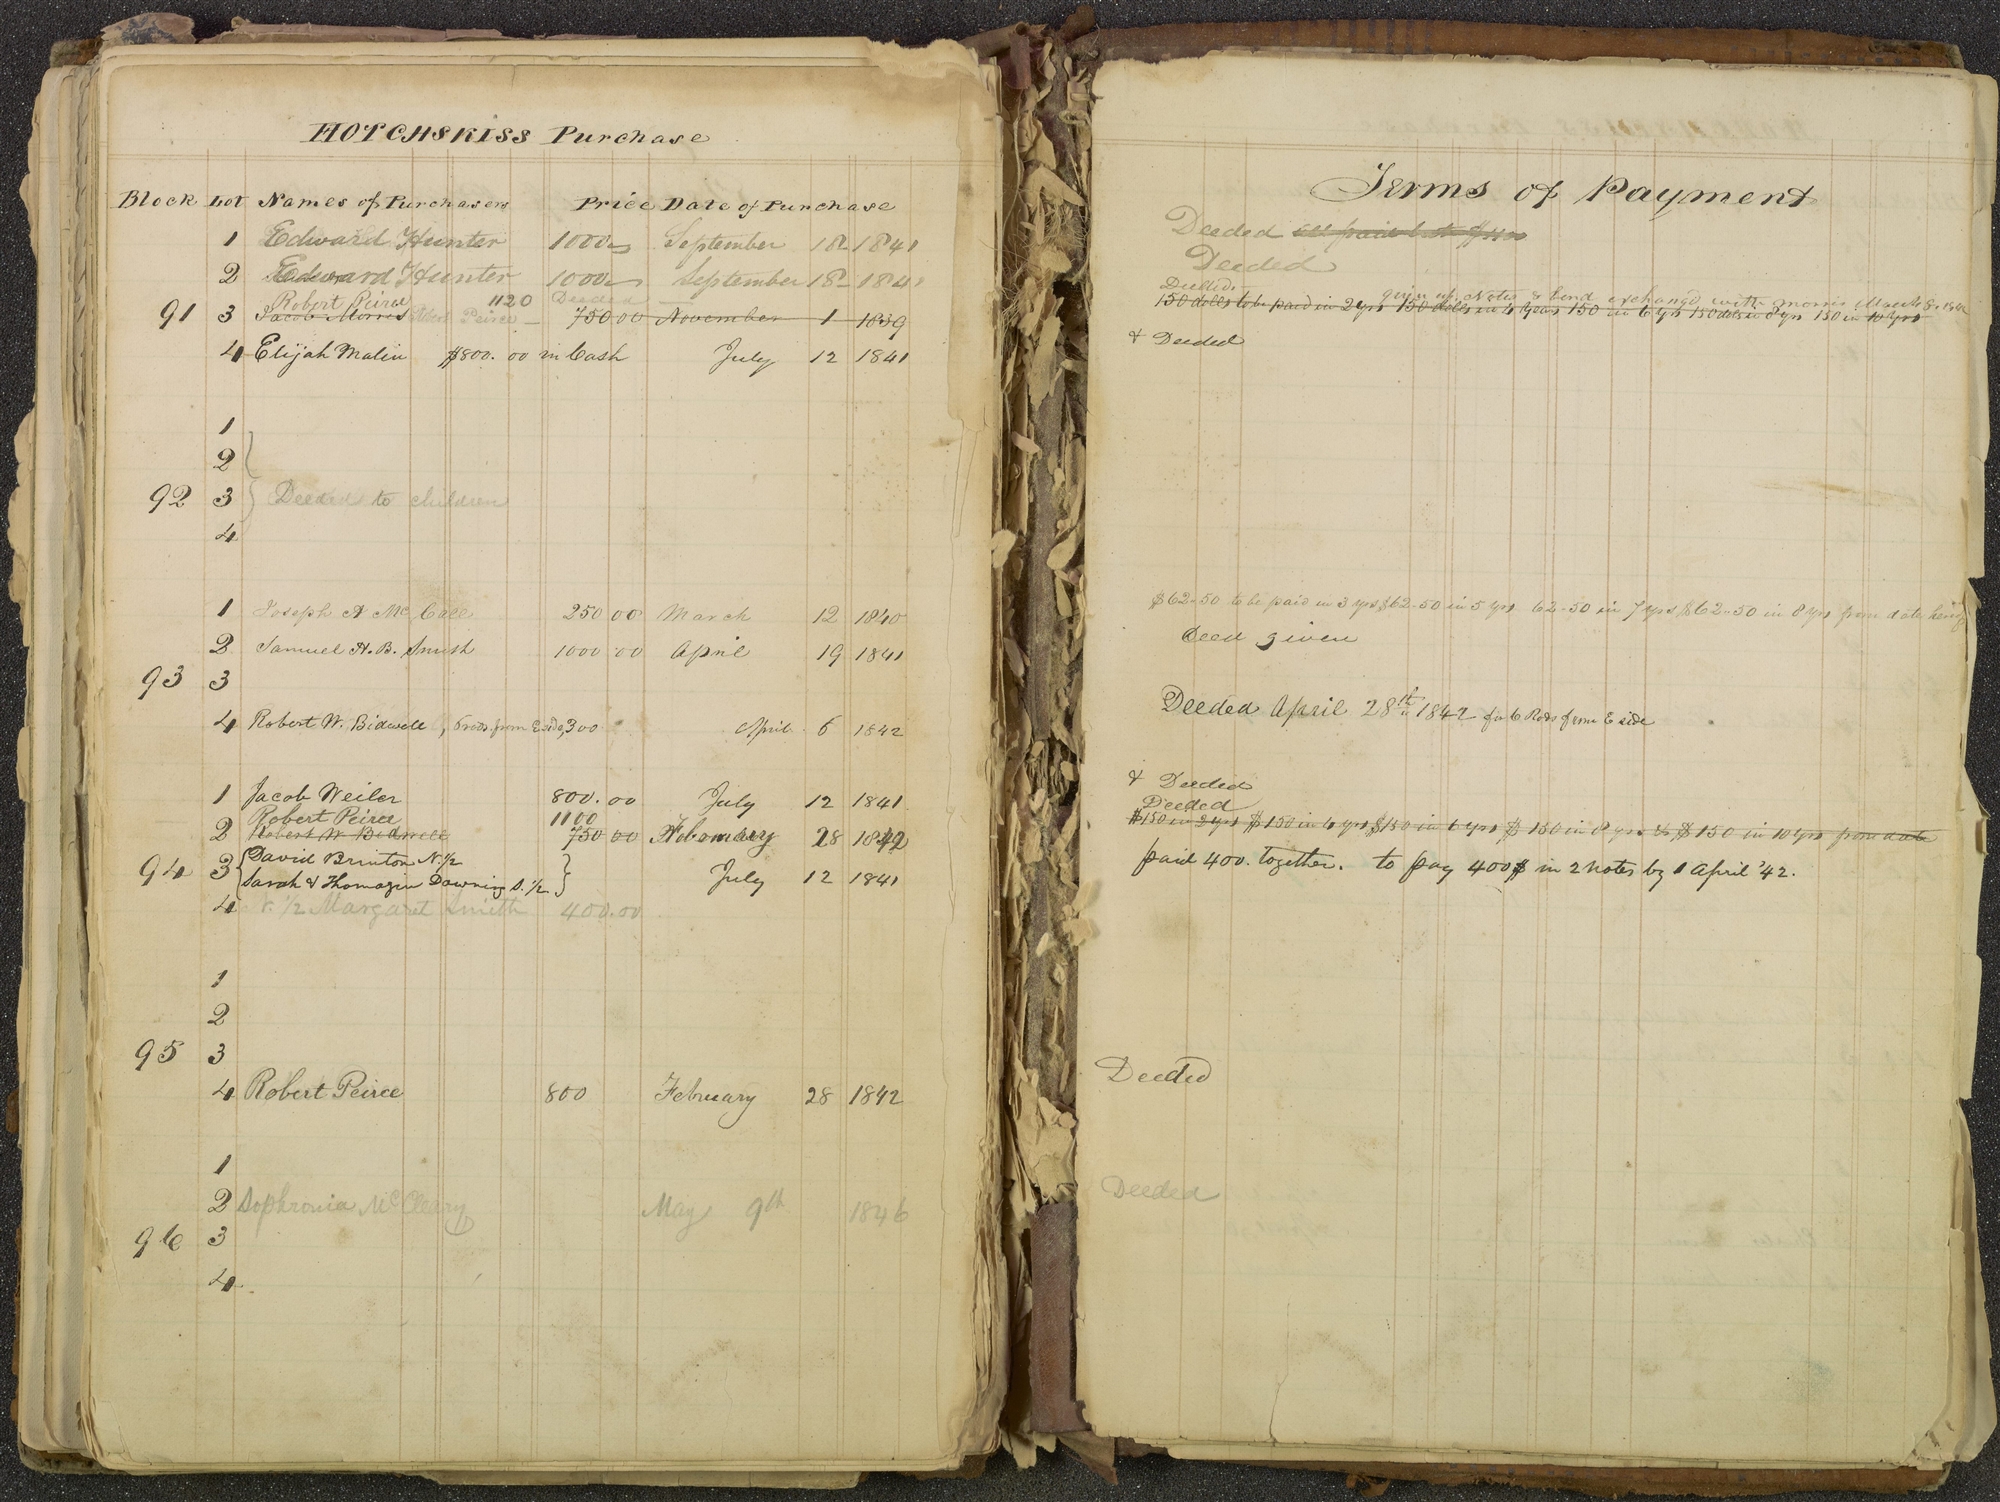 HOTCHSKISS Purchase
Block Lot Names of Purchasers Price Date of Purchase
1 Edward Hunter 1000 September 18 1841
2 Edward Hunter 1000 September 18 1841
Robert Peirce 1120 Deeded
91 3 Jacob Morris Peirce 750 00 November 1 1839
4 Elijah Malin $800. 00 in Cash July 12 1841
1
2
92 3 Deeded to children
4
1 Joseph A Mc Call 250 00 March 12 1840
2 Samuel H. B. Smith 1000 00 April 19 1841
93 3
4 Robert W. Bidwell, 6 rods from E side, 300 April 6 1842
1 Jacob Weiler 800. 00 July 12 1841
Robert Peirce 1100
2 Robert W Bidwell 750 00 February 28 1842
David Brinton N. 1/2
94 3 July 12 1841
Sarah & Thomazin Downing S. 1/2
4 1/2 Margaret Smith 400.00
1
2
95 3
4 Robert Peirce 800 February 28 1842
1
2 Sophronia Mc Cleary May 9th 1846
96 3
4
Terms of Payment
Deeded
Deeded
Deeded. given up Notes & bond exchangd with morris March 8. 1842
150 dolls to be paid in 2 yrs 150 dolls in 4 years 150 in 6 yrs 150 dols in 8 yrs 150 in 10 yrs
& Deeded
$62-50 to be paid in 3 yrs $62-50 in 5 yrs 62-50 in 7 yrs $62-50 in 8 yrs from date
Deed given
Deeded April 28th 1842 for 6 Rods from E side
& Deeded
Deeded
$150 in 2 yrs $150 in 4 yrs $150 in 6 yrs $150 in 8 yrs & $150 in 10 yrs from date
paid 400. together. to pay 400$ in 2 notes by 1 April '42.
Deeded
Deeded